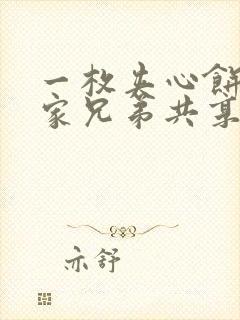 一枚夹心餅
家兄弟共享
亦舒